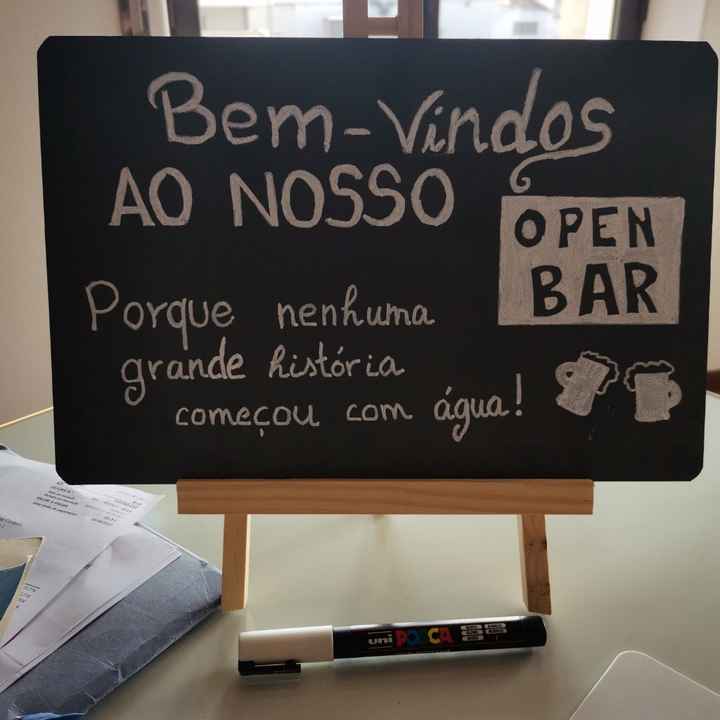 Bem-Vindos
AO NOSSO
OPEN
BAR
Porque nenhuma
grande história
começou com água!
uni POSCA